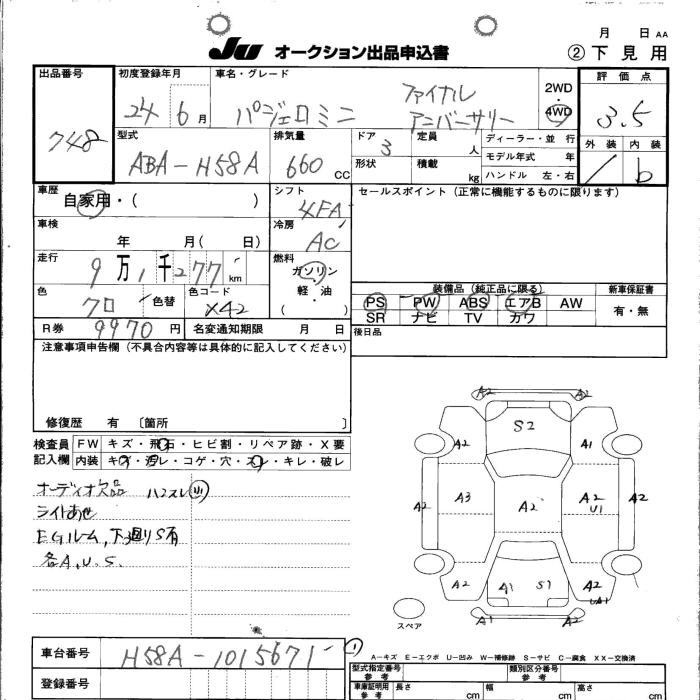 月 日 AA
JU オークション出品申込書 ②下見用
出品番号 初度登録年月 車名・グレード 2WD・4WD 評価点
748 24 6月 パジェロミニ ファイナル アニバーサリー 3.5
型式 排気量 ドア 定員 人 ディーラー・並行 外装 内装
ABA-H58A 660 CC 3 形状 積載 kg モデル年式 年 ハンドル 左・右 b
車歴 自家用・( ) シフト 4FA セールスポイント（正常に機能するものに限ります）
車検 年 月( 日) 冷房 AC
走行 9万1千277km 燃料 ガソリン・軽油・( )
装備品（純正品に限る） 新車保証書
色 クロ 色替 色コード X42
PS PW ABS エアB AW 有・無
SR ナビ TV カワ
R券 9970円 名変通知期限 月 日 後日品
注意事項申告欄（不具合内容等は具体的に記入してください）
修復歴 有 〔箇所 〕
検査員記入欄 FW キズ・飛石・ヒビ割・リペア跡・X要
内装 キズ・汚レ・コゲ・穴・スレ・キレ・破レ
オーディオ欠品 ハンスレ 小
ライトあせ
EGルーム,下廻りS有
各A,U,S.
A2 A2
S2
A2 A1
A2 A3 A2 A2 U1 A2
A2 A1 S1 A2 UA1
A1 A2
スペア
車台番号 H58A-1015671
登録番号
A-キズ E-エクボ U-凹み W-補修跡 S-サビ C-腐食 XX-交換済
型式指定番号 参考 類別区分番号 参考
車庫証明用 参考 長さ cm 幅 cm 高さ cm